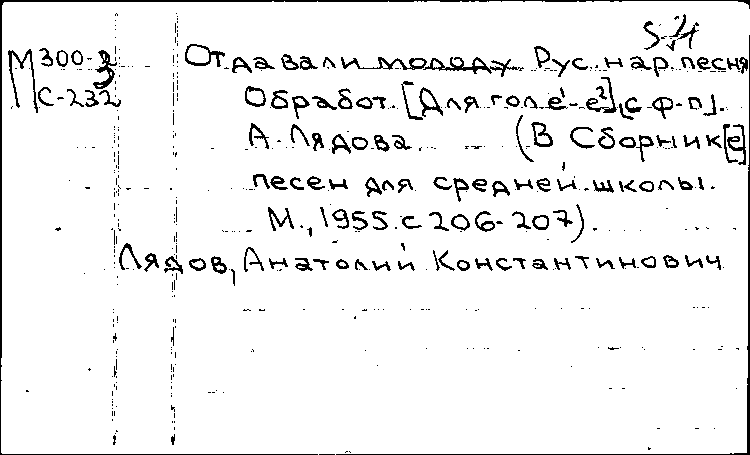 М 300-3 Отдавали молоду Рус. нар. песня
С-232 Обработ. [Для гол. e¹-e²], [с ф-п].
А. Лядова. (В Сборник[е]
песен для средней школы.
М., 1955. с 206-207).
Лядов, Анатолий Константинович